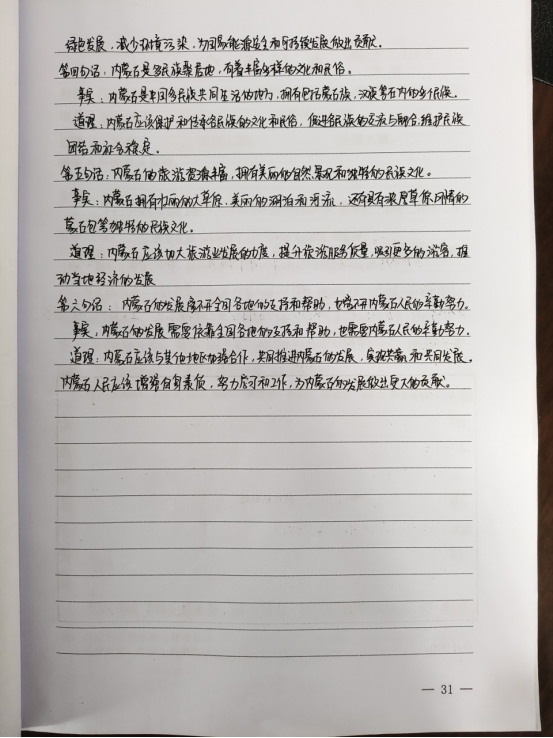 绿色发展，减少环境污染，为国家能源安全和可持续发展做出贡献。
第四句话：内蒙古是多民族聚居地，有着丰富多样的文化和民俗。
事实：内蒙古是中国多民族共同生活的地方，拥有包括蒙古族、汉族等在内的多个民族。
道理：内蒙古应该保护和传承各民族的文化和民俗，促进各民族的交流与融合，维护民族
团结和社会稳定。
第五句话：内蒙古的旅游资源丰富，拥有美丽的自然景观和独特的民族文化。
事实：内蒙古拥有壮丽的大草原、美丽的湖泊和河流，还有具有浓厚草原风情的
蒙古包等独特的民族文化。
道理：内蒙古应该加大旅游业发展的力度，提升旅游服务质量，吸引更多的游客，推
动当地经济的发展
第六句话：内蒙古的发展离不开全国各地的支持和帮助，也离不开内蒙古人民的辛勤努力。
事实，内蒙古的发展需要依靠全国各地的支持和帮助，也需要内蒙古人民的辛勤努力。
道理：内蒙古应该与其他地区加强合作，共同推进内蒙古的发展，实现共赢和共同发展。
内蒙古人民应该增强自身素质，努力学习和工作，为内蒙古的发展做出更大的贡献。
— 31 —